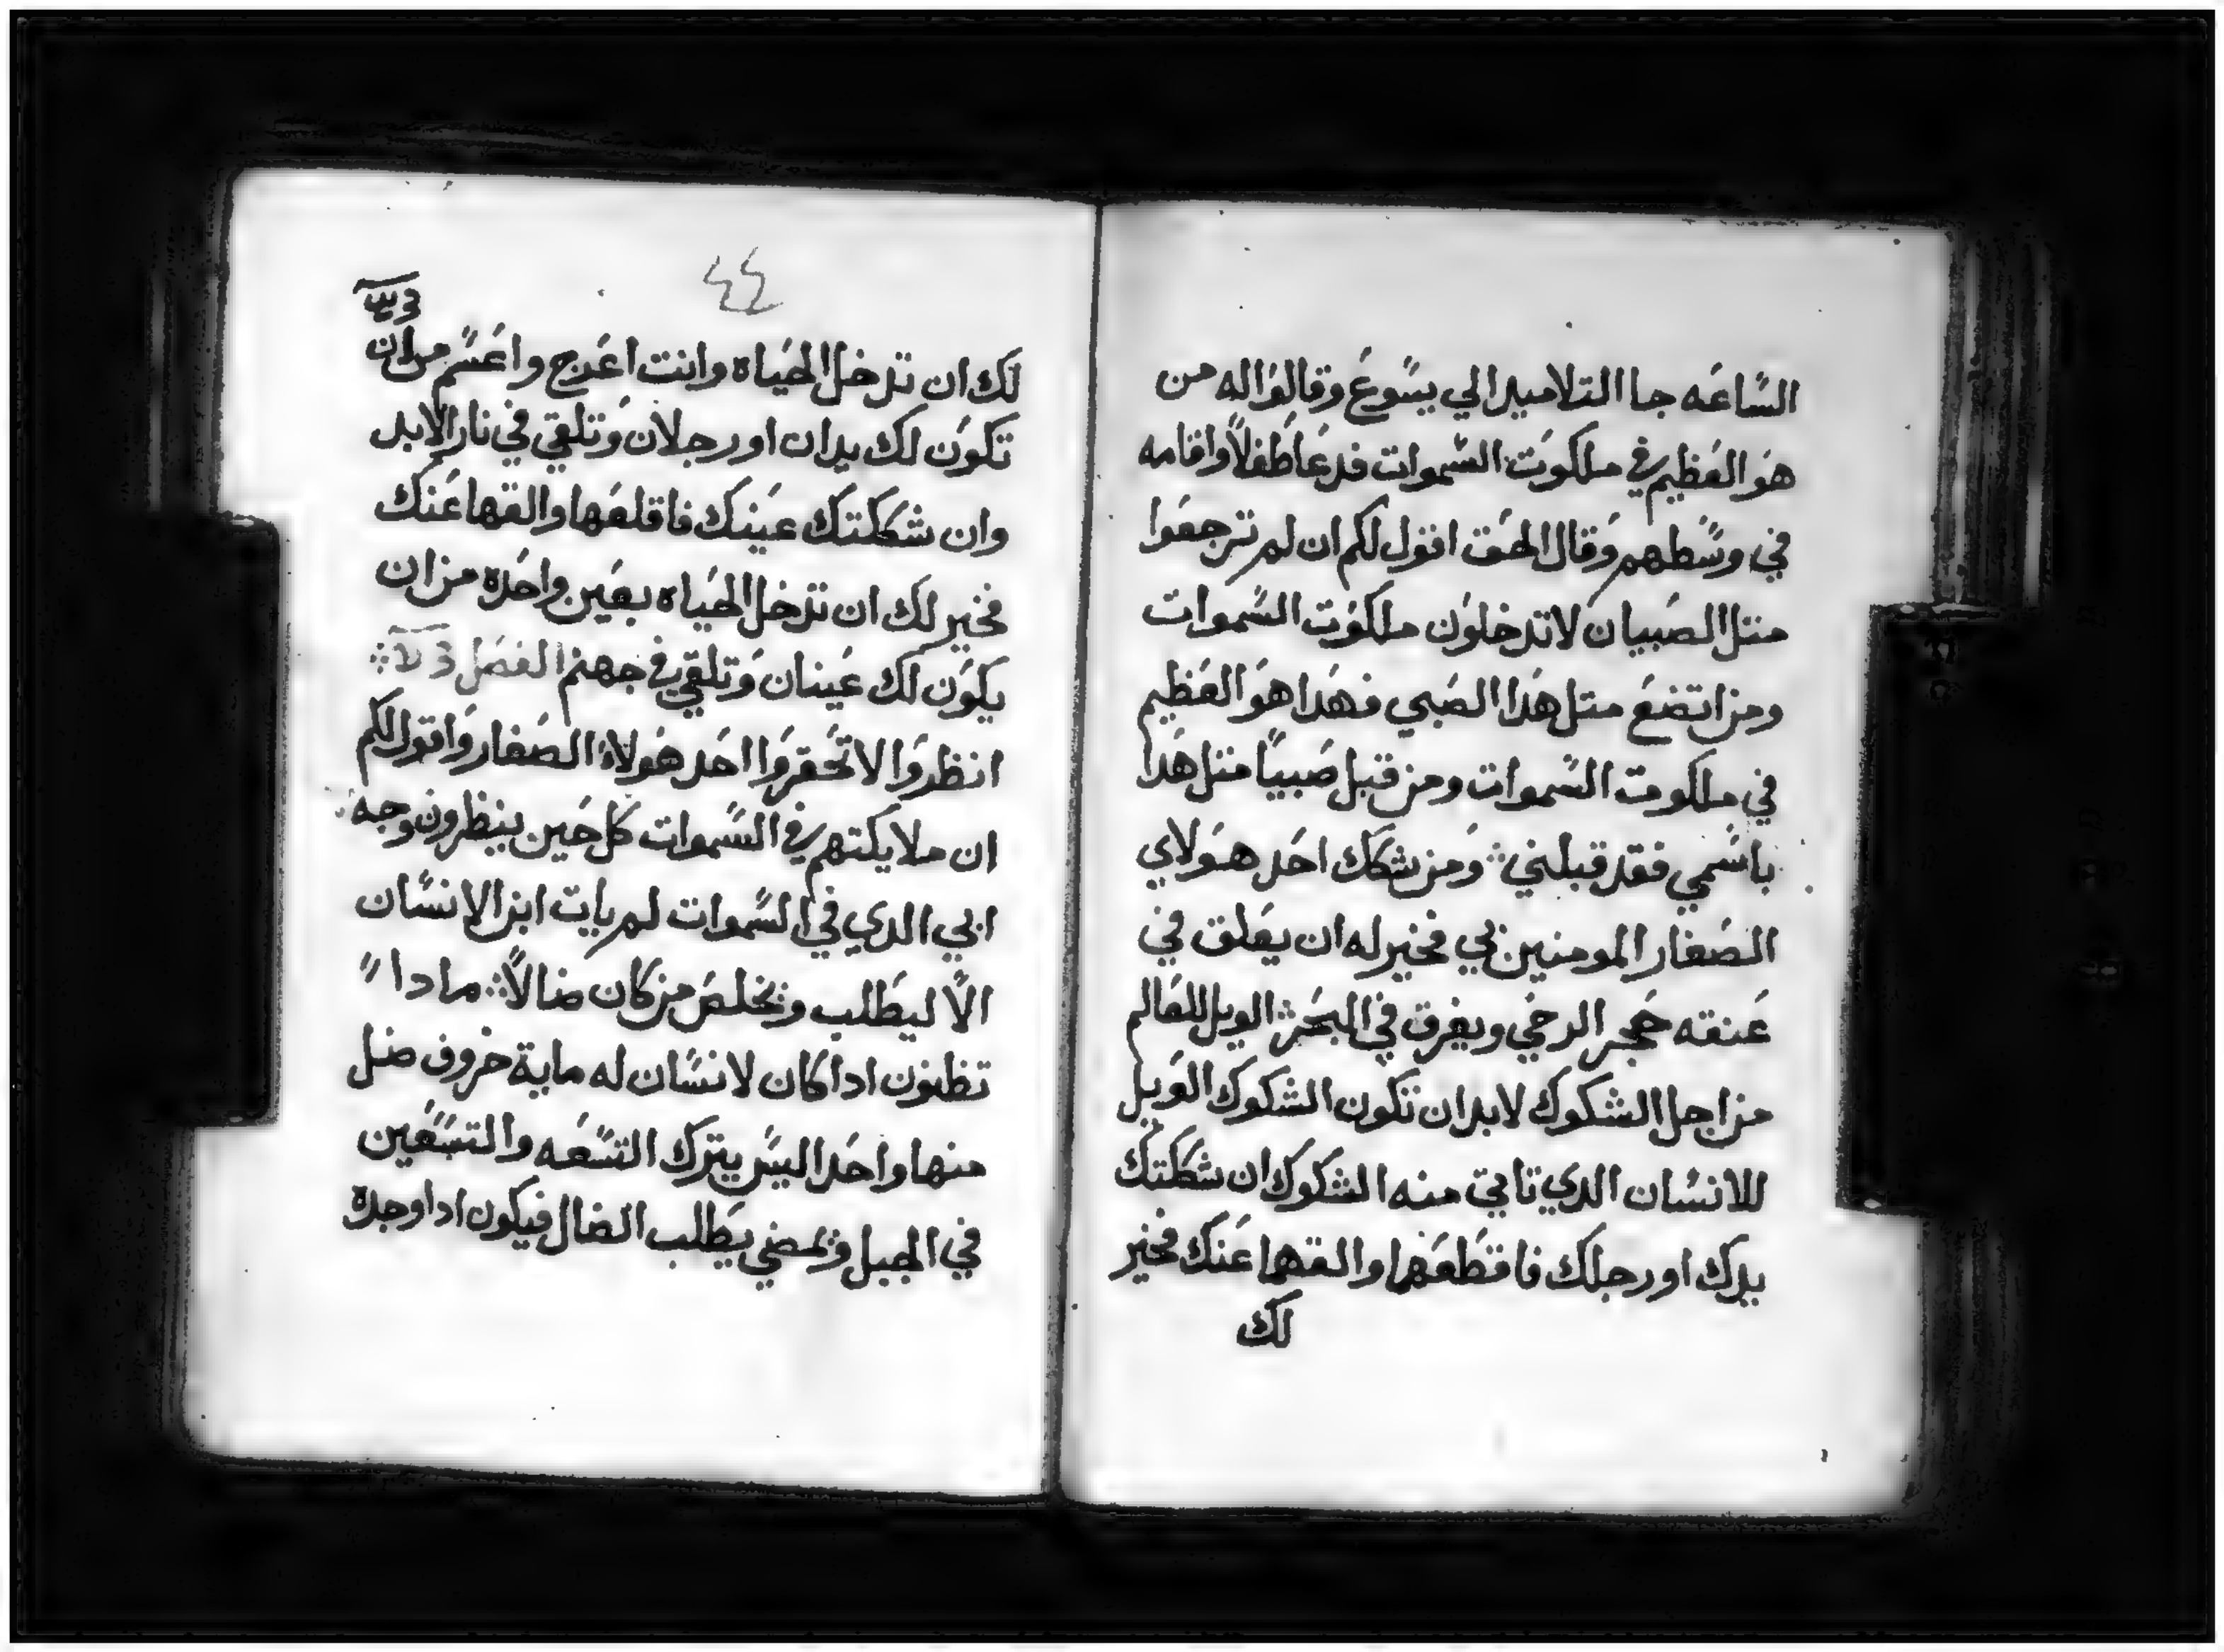 الساعه جا التلاميد الي يسوع وقالوا له من
هو العظيم في ملكوت السموات فدعا طفلاً واقامه
في وسطهم وقال الحق اقول لكم ان لم ترجعوا
متل الصبيان لا تدخلون ملكوت السموات
ومن اتضع متل هدا الصبي فهدا هو العظيم
في ملكوت السموات ومن قبل صبياً متل هدا
باسمي فقد قبلني ومن شكك احد هولاي
الصغار المومنين بي فخير له ان يعلق في
عنقه حجر الرحي ويغرق في البحر الويل للعالم
من اجل الشكوك لابد ان تكون الشكوك الويل
للانسان الدي تاتي منه الشكوك ان شككتك
يدك او رجلك فاقطعها والقها عنك فخير
لك
٤٤
لك ان تدخل الحياه وانت اعرج واعسم من ان
تكون لك يدان او رجلان وتلقي في نار الابد
وان شككتك عينك فاقلعها والقها عنك
فخير لك ان تدخل الحياه بعين واحده من ان
يكون لك عينان وتلقي في جهنم الفصل
انظروا لا تحقروا احد هولاء الصغار واقول لكم
ان ملايكتهم في السموات كل حين ينظرون وجه
ابي الدي في السموات لم يات ابن الانسان
الاّ ليطلب ويخلص من كان ضالاً مادا
تظنون ادا كان لانسان له ماية خروف ضل
منها واحد اليس يترك التسعه والتسعين
في الجبل ويمضي يطلب الضال فيكون ادا وجده